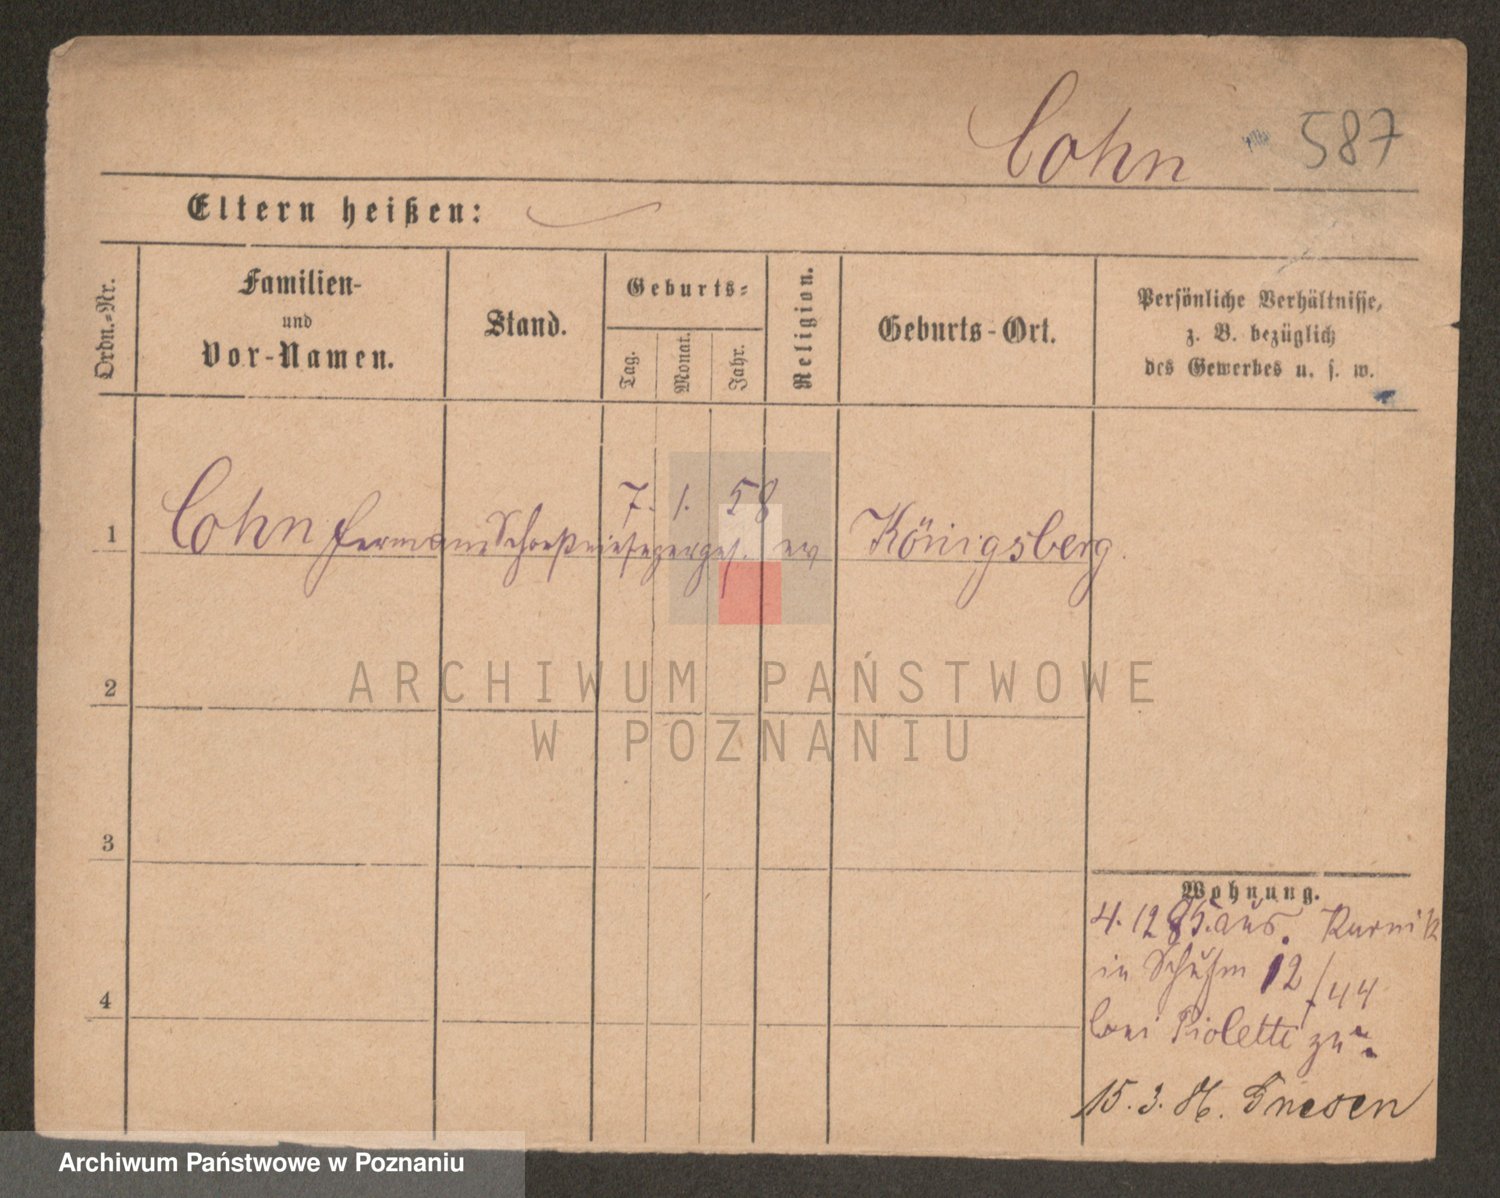 Cohn 587
Eltern heißen:
Ordn.-Nr.
Familien-
und
Vor-Namen.
Stand.
Geburts-
Tag.
Monat.
Jahr.
Religion.
Geburts-Ort.
Persönliche Verhältnisse,
z. B. bezüglich
des Gewerbes u. s. w.
1 Cohn Hermann 7. 1. 58 ev Königsberg.
2
3
4
Wohnung.
4. 12 85. aus. Kurnik
in 12/44
bei Pioletti zu
15. 3. 86. Gnesen
ARCHIWUM PAŃSTWOWE
W POZNANIU
Archiwum Państwowe w Poznaniu